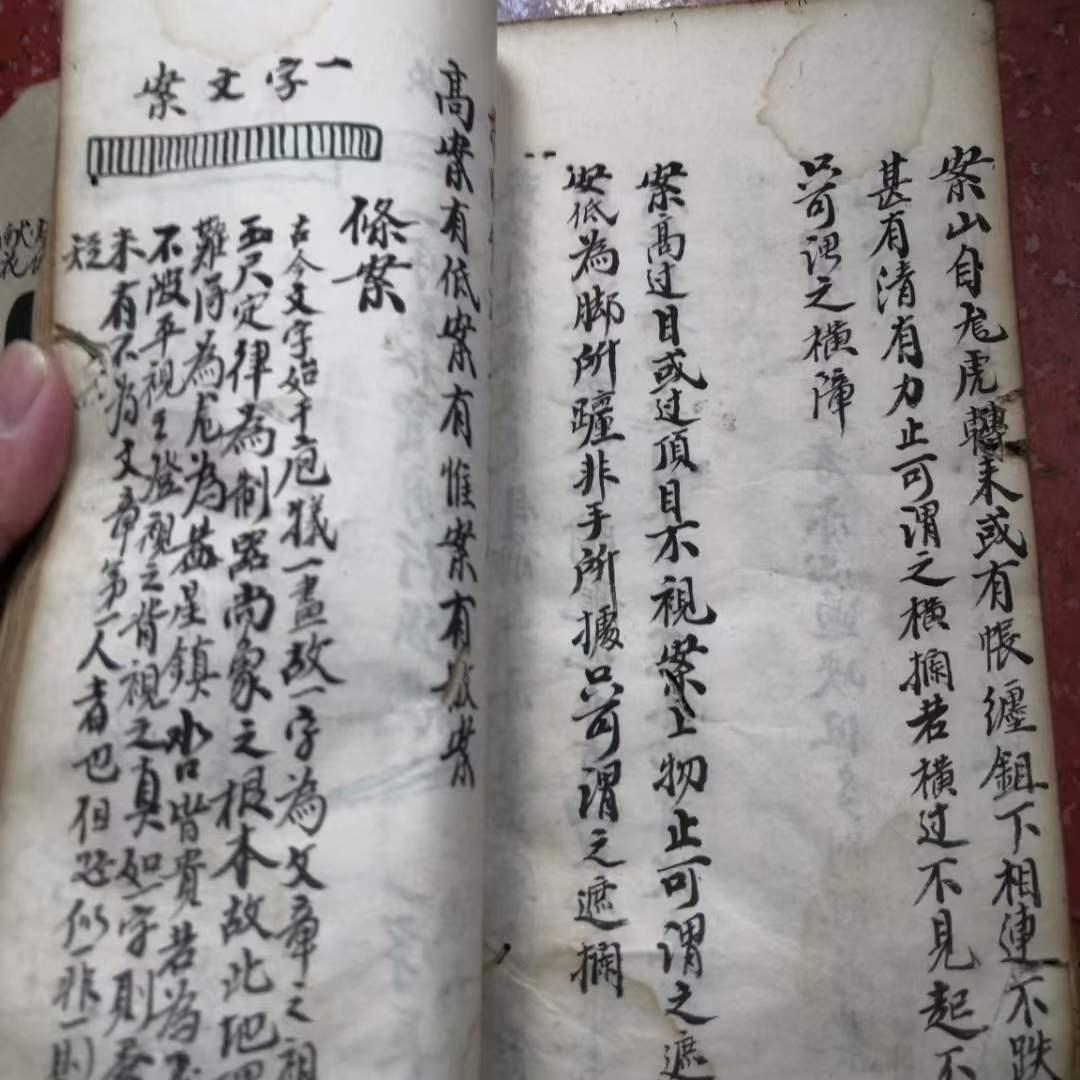 案山自龙虎轉来或有帳纏鉏下相連不跌
甚有清有力止可謂之横攔若横过不見起不
只可谓之横障
案高过目或过頂目不視案上物止可謂之遮
案低為脚所躔非手所據只可謂之遮攔
高案有低案有惟案有
一字文案
條案
古今文字始于庖犠一畫故一字為文章之祖
玉尺定律為制器尚象之根本故此地
難得為龙為蓋星鎮水口皆貴若為
不陂平視之發視之背視之真如一字則
未有不為文章第一人者也但恐似一非一則
短